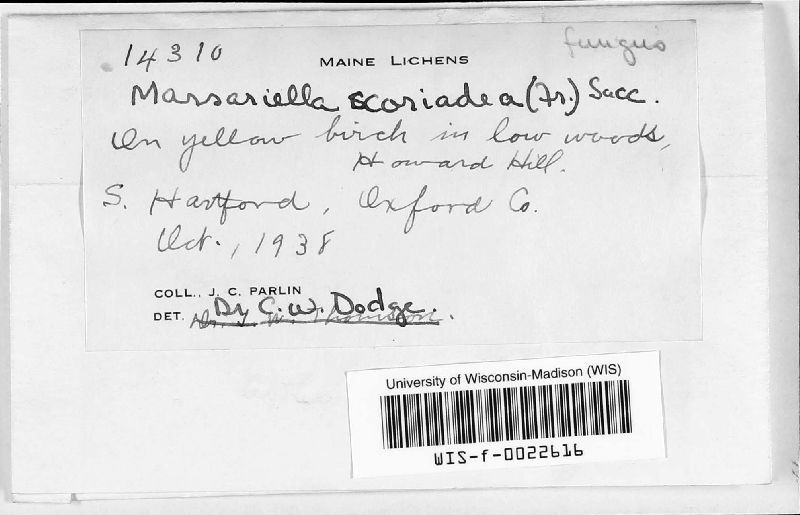 14310 fungus
MAINE LICHENS
Massariella scoriadea (Fr.) Sacc.
On yellow birch in low woods,
Howard Hill.
S. Hartford, Oxford Co.
Oct., 1938
COLL., J. C. PARLIN
DET. Dr. J. W. Thomson. Dr C. W. Dodge.
University of Wisconsin-Madison (WIS)
WIS-f-0022616